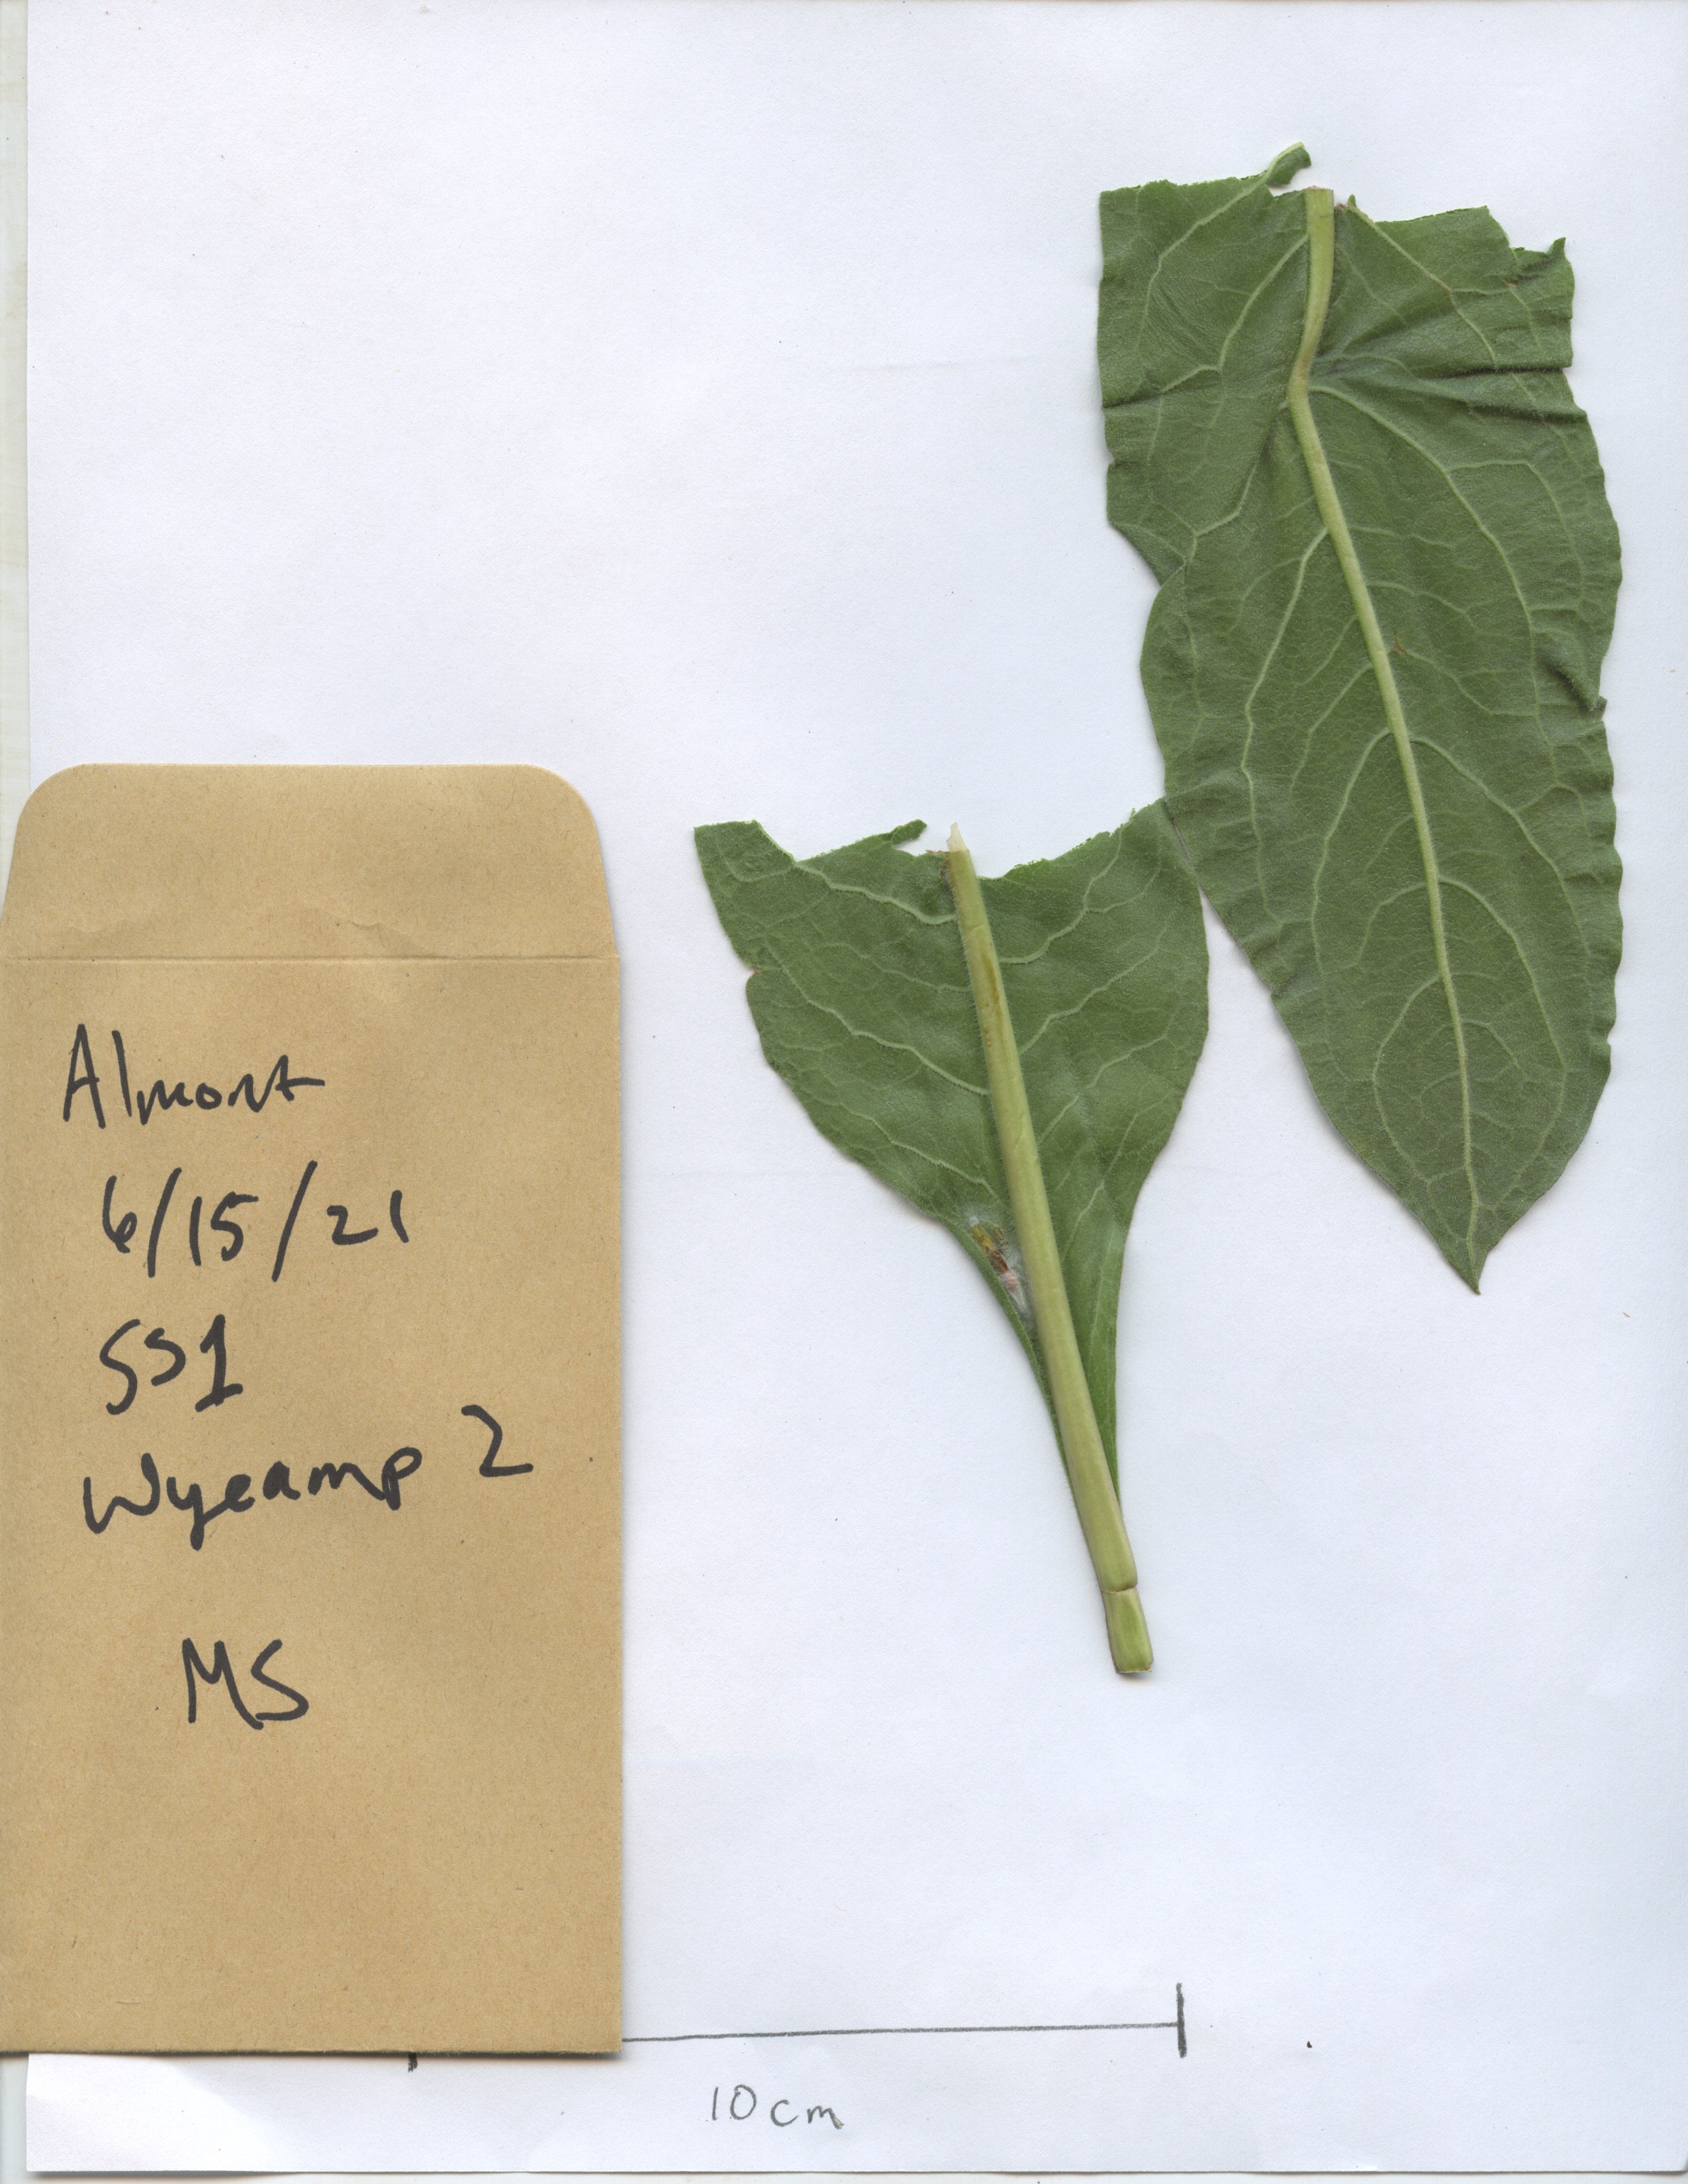 Almont
6/15/21
SS1
Wyeamp 2
MS
10cm